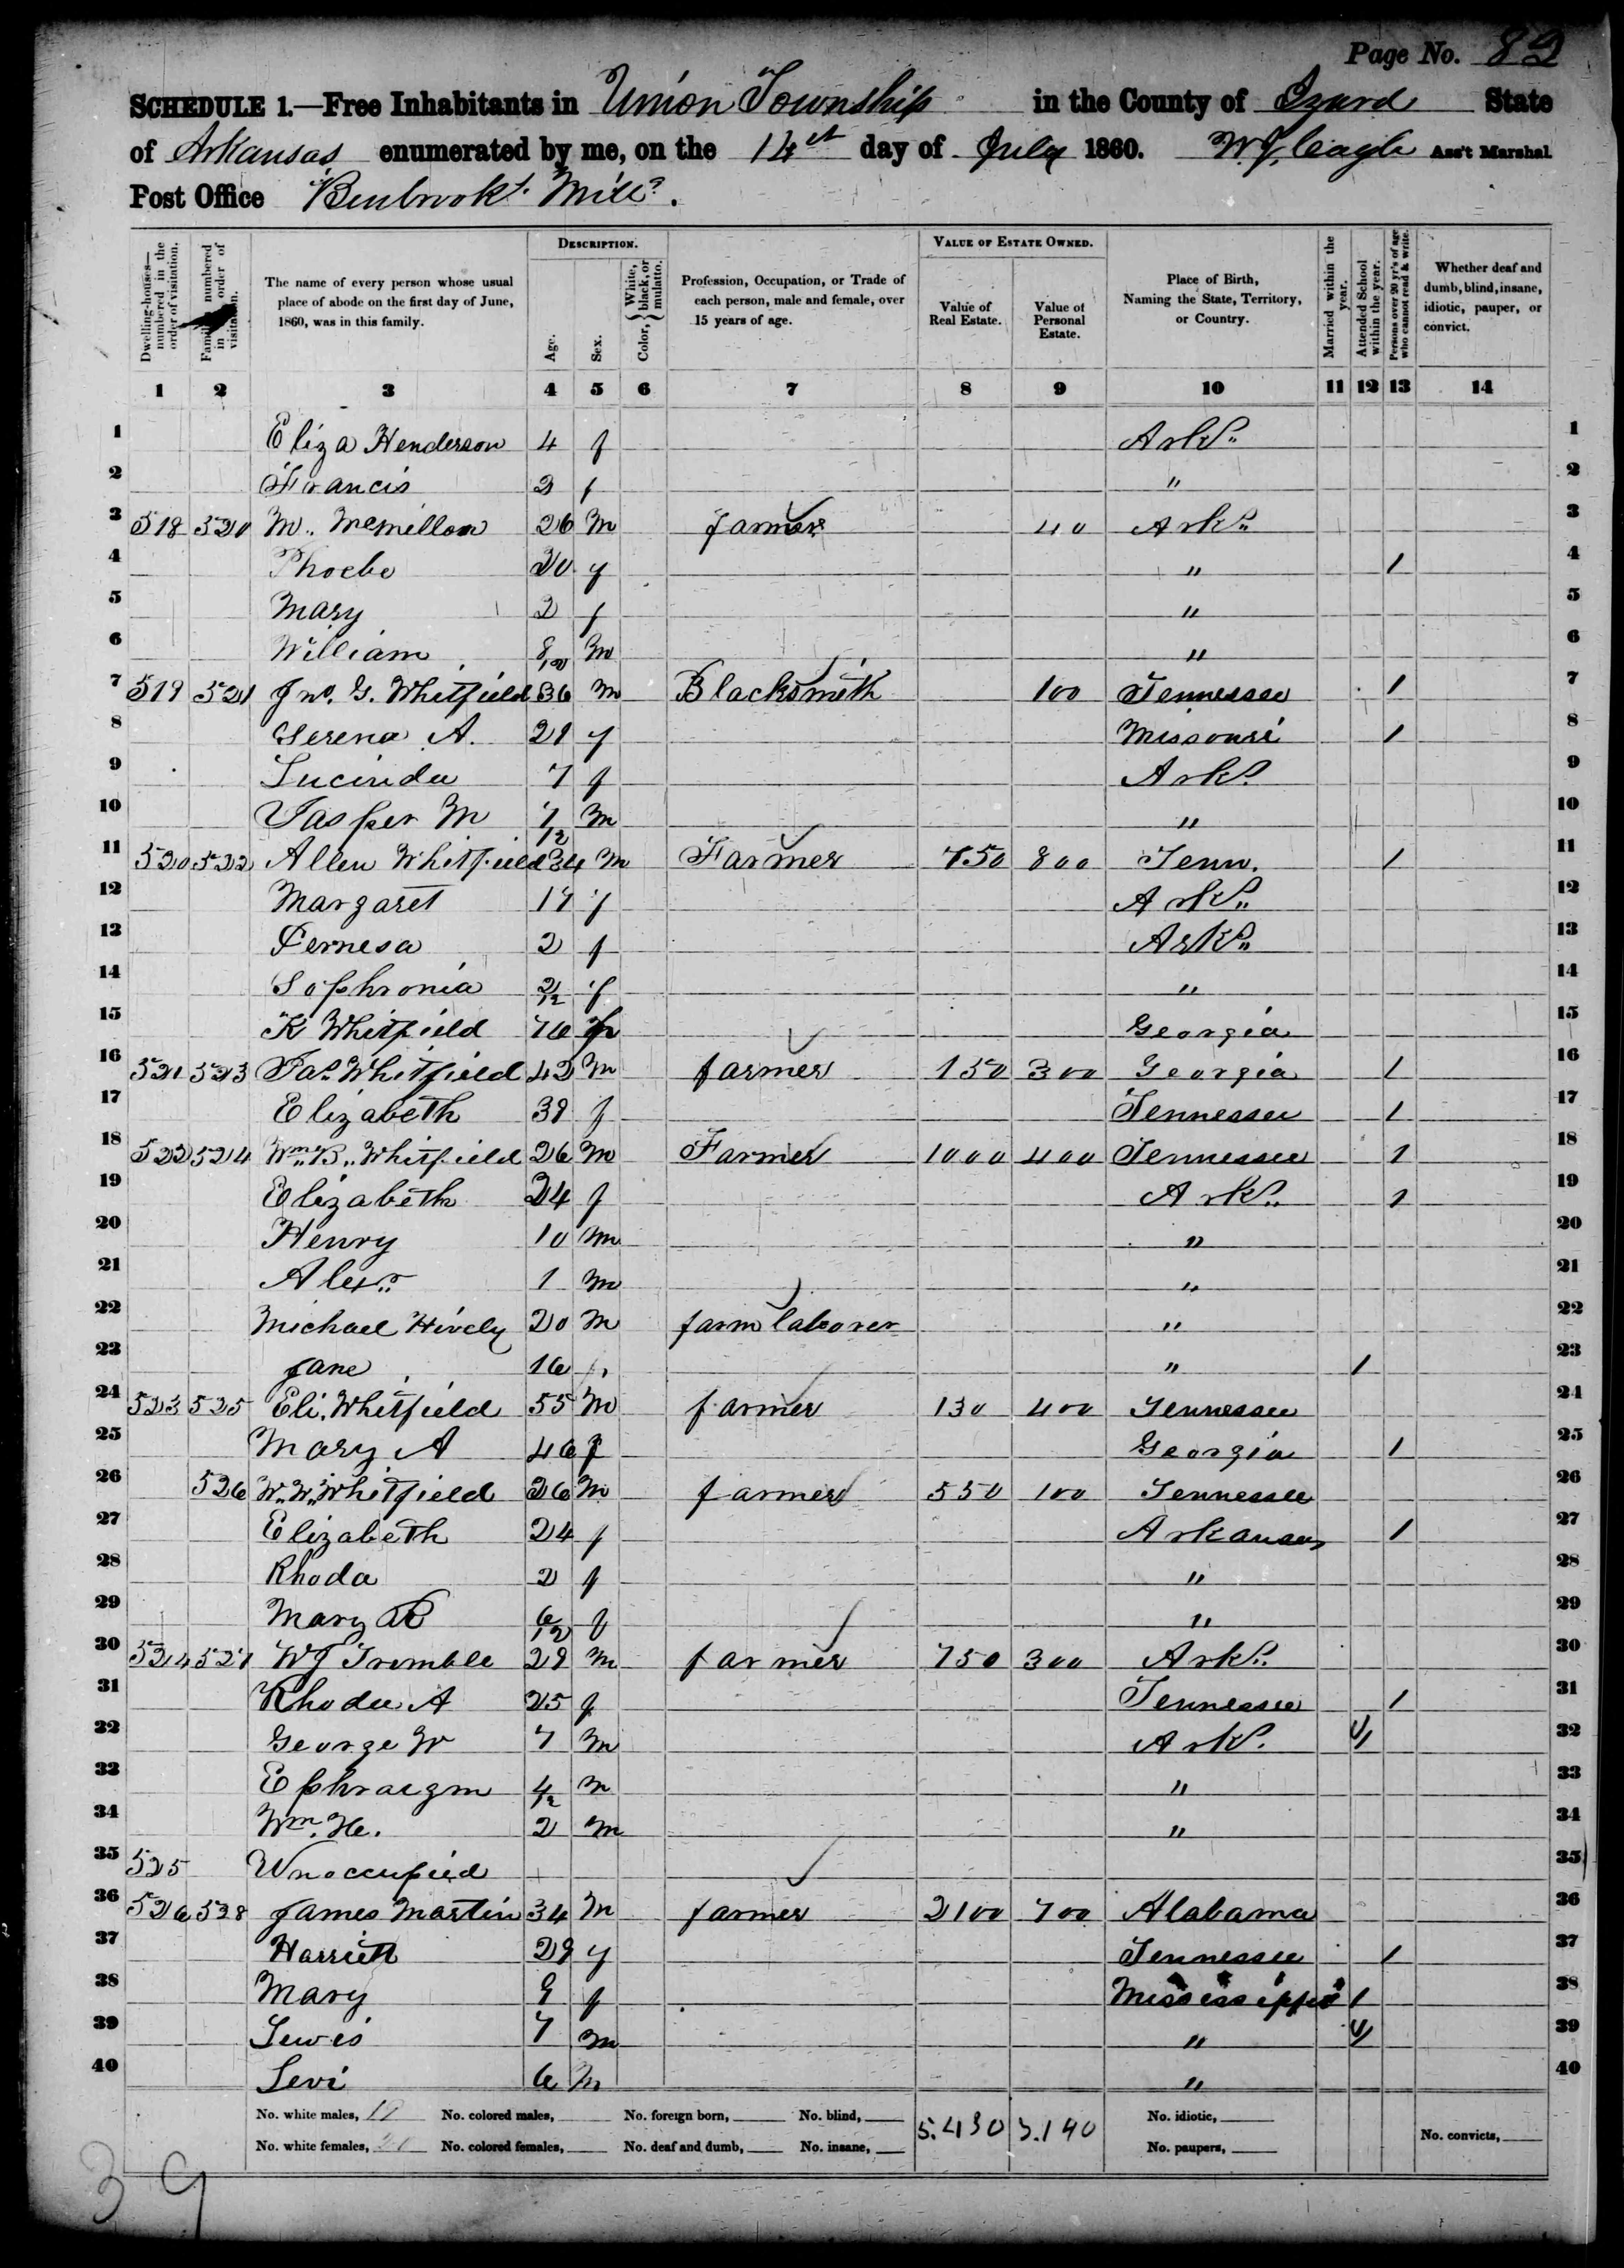 Page No. 82
SCHEDULE 1.—Free Inhabitants in Union Township in the County of Izard State
of Arkansas enumerated by me, on the 14th day of July 1860. W. J. Cagle Ass't Marshal
Post Office Benbrooks Mills.
Dwelling-houses—numbered in the order of visitation. Families numbered in the order of visitation. The name of every person whose usual place of abode on the first day of June, 1860, was in this family. DESCRIPTION. Age. Sex. Color, { White, black, or mulatto. Profession, Occupation, or Trade of each person, male and female, over 15 years of age. VALUE OF ESTATE OWNED. Value of Real Estate. Value of Personal Estate. Place of Birth, Naming the State, Territory, or Country. Married within the year. Attended School within the year. Persons over 20 yr's of age who cannot read & write. Whether deaf and dumb, blind, insane, idiotic, pauper, or convict.
1 2 3 4 5 6 7 8 9 10 11 12 13 14
1 Eliza Henderson 4 f Arks. 1
2 Francis 2 f " 2
3 518 520 M. McMillon 26 M farmer 40 Arks. 3
4 Phoebe 20 f " 1 4
5 Mary 2 f " 5
6 William 8/12 M " 6
7 519 521 Jno. G. Whitfield 36 M Blacksmith 100 Tennessee 1 7
8 Serena A. 29 f Missouri 1 8
9 Lucinda 7 f Arks. 9
10 Jasper M 7/12 M " 10
11 520 522 Allen Whitfield 34 M Farmer 750 800 Tenn. 1 11
12 Margaret 19 f Arks. 12
13 2 f Arks. 13
14 Sophronia 2/12 f " 14
15 K Whitfield 76 f Georgia 15
16 521 523 Jas. Whitfield 42 M farmer 150 300 Georgia 1 16
17 Elizabeth 39 f Tennessee 1 17
18 522 524 Wm. B. Whitfield 26 M Farmer 1000 400 Tennessee 1 18
19 Elizabeth 24 f Arks. 1 19
20 Henry 10 M " 20
21 Alexr. 1 M " 21
22 Michael Hively 20 M farm laborer " 22
23 Jane 16 f " 1 23
24 523 525 Eli Whitfield 55 M farmer 130 400 Tennessee 24
25 Mary A 46 f Georgia 1 25
26 526 W. W. Whitfield 26 M farmer 550 100 Tennessee 26
27 Elizabeth 24 f Arkansas 1 27
28 Rhoda 2 f " 28
29 Mary 6/12 f " 29
30 524 527 WJ Trimble 29 M farmer 750 300 Arks. 30
31 Rhoda A 25 f Tennessee 1 31
32 George W 7 M Arks. 1 32
33 Ephraigm 4/12 M " 33
34 Wm. H. 2 M " 34
35 525 Unoccupied 35
36 526 528 James Martin 34 M farmer 2100 700 Alabama 36
37 Harriett 29 f Tennessee 1 37
38 Mary 9 f Mississippi 1 38
39 Lewis 7 M " 1 39
40 Levi 6 M " 40
No. white males, 19 No. colored males, No. foreign born, No. blind, 5.430 3.140 No. idiotic,
No. white females, 20 No. colored females, No. deaf and dumb, No. insane, No. paupers, No. convicts,
39